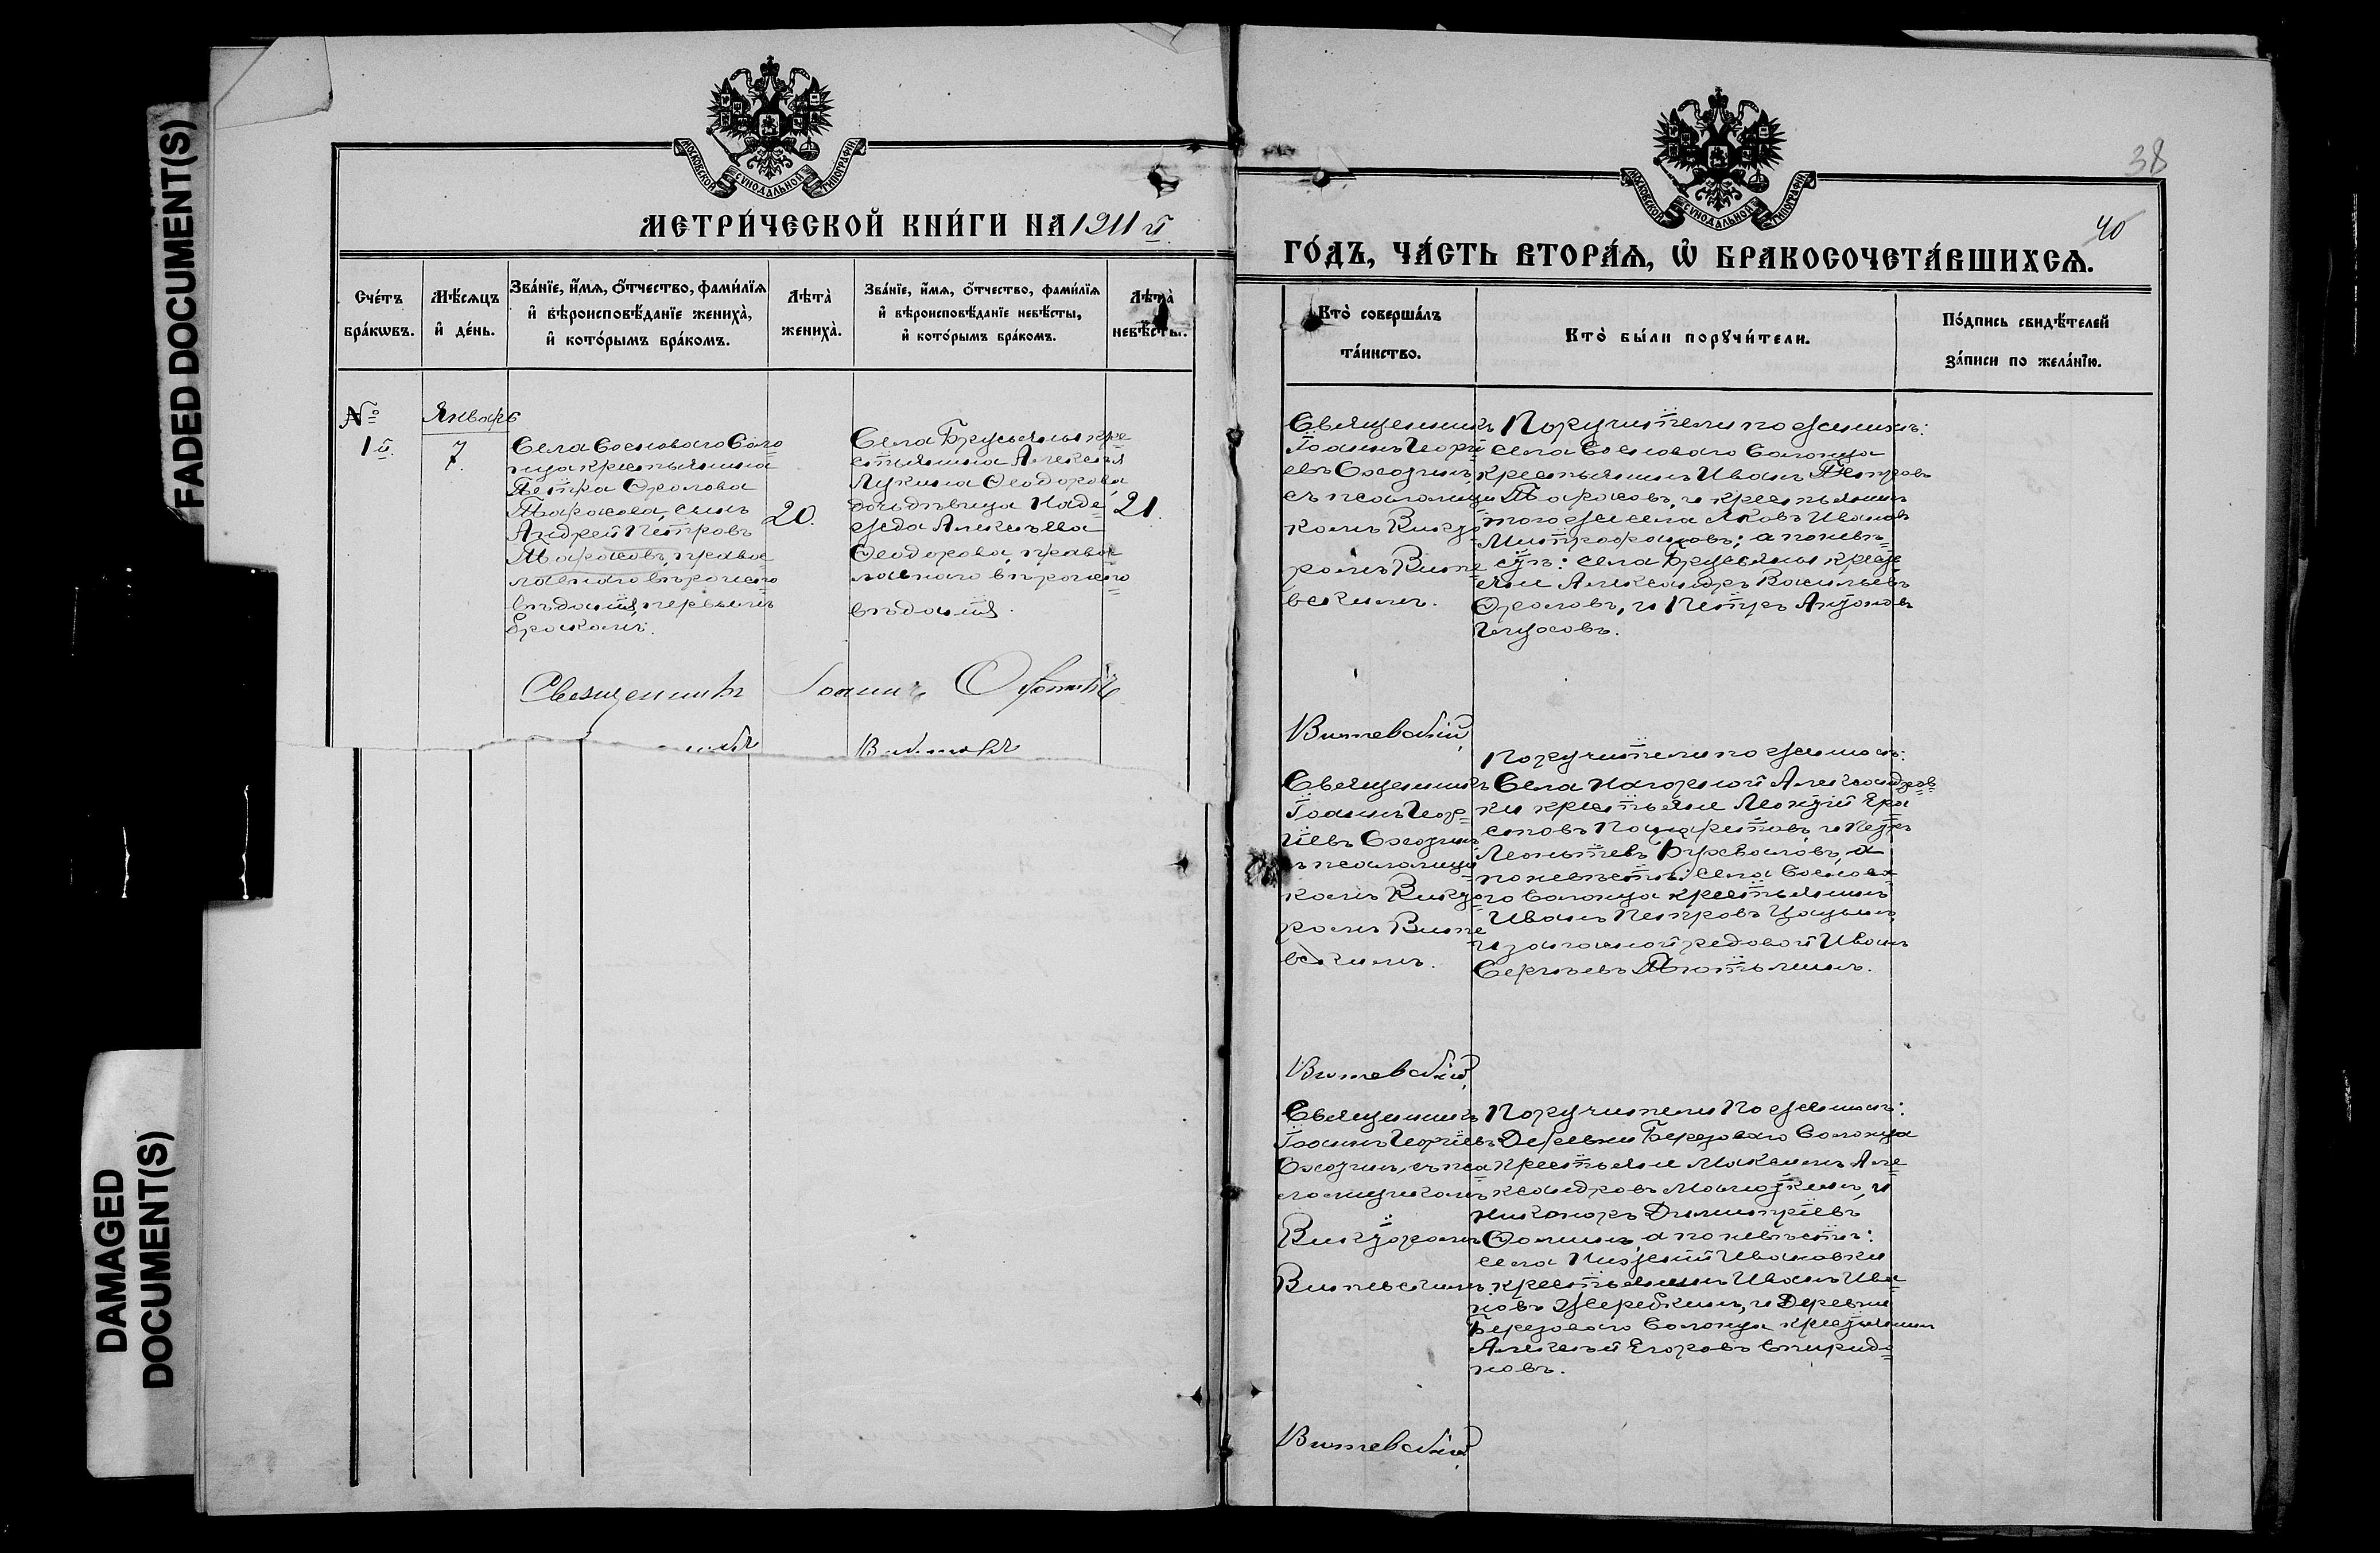 FADED DOCUMENT(S)
DAMAGED
DOCUMENT(S)
МОСКОВСКОЙ СѴНОДАЛЬНОЙ ТИПОГРАФІИ
МЕТРИ́ЧЕСКОЙ КНИ́ГИ НА 1911 й
Сче́тъ
бра́кωвъ.
Мѣ́сяцъ
и҆ де́нь.
Зва́нїе, и҆́мѧ, ѻ҆́тчество, фами́лїѧ
и҆ вѣроисповѣ́данїе жениха̀,
и҆ кото́рымъ бра́комъ.
Лѣта̀
жениха̀.
Зва́нїе, и҆́мѧ, ѻ҆́тчество, фами́лїѧ
и҆ вѣроисповѣ́данїе невѣ́сты,
и҆ кото́рымъ бра́комъ.
Лѣта̀
невѣ́сты.
№
1й
Январь
7.
Села Сосноваго Соло
нца крестьянина
Петра Фролова
Тарасова, сынъ
Андрей Петровъ
Тарасовъ, правос
лавнаго вѣроиспо
вѣданія, первымъ
бракомъ.
20.
Села Брусяны кре
стьянина Алексѣя
Лукина Ѳеодорова
дочь дѣвица Наде
жда Алексѣева
Ѳеодорова, правос
лавнаго вѣроиспо
вѣданія.
21.
Священникъ Іоаннъ
38
40
МОСКОВСКОЙ СѴНОДАЛЬНОЙ ТИПОГРАФІИ
ГО́ДЪ, ЧА́СТЬ ВТОРА́Ѧ, Ѽ БРАКОСОЧЕТА́ВШИХСѦ.
Кто̀ соверша́лъ
та́инство.
Кто̀ бы́ли порꙋчи́тели.
По́дпись свидѣ́телей
за́писи по жела́нїю.
Священникъ
Іоаннъ Георгі
евъ
съ псаломщи
комъ Викто
ромъ Вите
вскимъ.
Поручители по женихѣ:
села Сосноваго Солонца
крестьянинъ Иванъ Петровъ
Тарасовъ, и крестьянинъ
того же села Яковъ Ивановъ
Митрофановъ; а по невѣ
стѣ: села Брусяны крес
яне Александръ Васильевъ
Фроловъ, и Петръ Антоновъ
Витевскій
Священникъ
Іоаннъ Геор
гіевъ
псаломщи
комъ Викто
ромъ Вите
вскимъ.
Поручители по женихѣ:
Села Нагорной Александров
ки крестьяне Леонтій Ера
стовъ и Петръ
Леонтьевъ а
по невѣстѣ: села Соснова
го Солонца крестьянинъ
Иванъ Петровъ
и запасной рядовой Иванъ
Сергѣевъ
Витевскій
Священникъ
Іоаннъ Георгіевъ
съ пса
ломщикомъ
Викторомъ
Витевскимъ
Поручители по женихѣ:
Деревни Березоваго Солонца
крестьяне Максимъ Але
ксандровъ и
Никаноръ Димитріевъ
Ѳоминъ, а по невѣстѣ:
села Нижней Ивановки
крестьянинъ Иванъ Ива
новъ Жеребкинъ, и Деревни
Березоваго Солонца крестьянинъ
Алексѣй Егоровъ Спиридо
новъ.
Витевскій